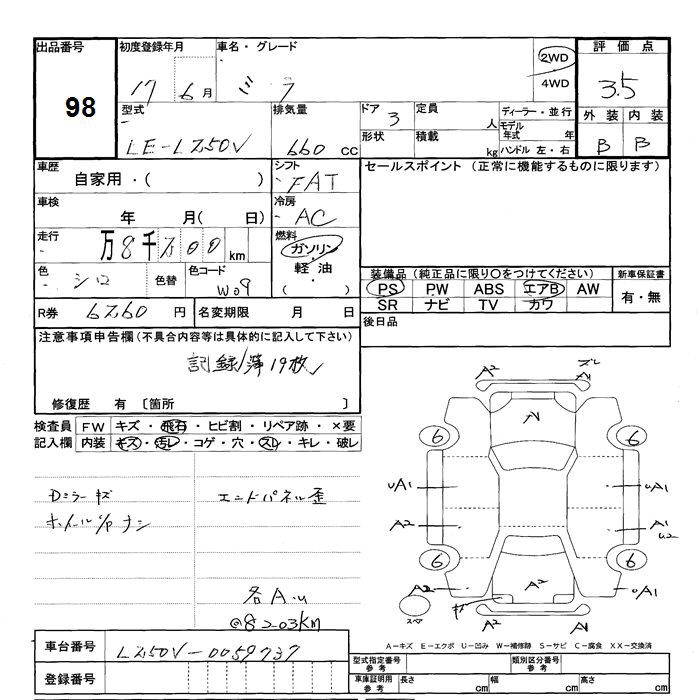 出品番号
98
初度登録年月
17 6月
車名・グレード
ミラ
2WD
4WD
評価点
3.5
型式
LE-L250V
排気量
660 cc
ドア 3
形状
定員 人
積載 kg
ディーラー・並行
モデル年式 年
ハンドル 左・右
外装 内装
B B
車歴
自家用・( )
シフト
FAT
セールスポイント (正常に機能するものに限ります)
車検
年 月( 日)
冷房
AC
走行
万8千200km
燃料
ガソリン
軽油
( )
色
シロ
色替
色コード
W09
装備品(純正品に限り○をつけてください)
PS PW ABS エアB AW
SR ナビ TV カワ
新車保証書
有・無
R券 6760 円
名変期限 月 日
後日品
注意事項申告欄(不具合内容等は具体的に記入して下さい)
記録簿19枚
修復歴 有 〔箇所 〕
検査員記入欄
FW キズ・飛石・ヒビ割・リペア跡・×要
内装 キズ・汚レ・コゲ・穴・スレ・キレ・破レ
Dミラーキズ
エンドパネル歪
各A.u
@8203KM
A2 ズレ A1
6 6
uA1 uA1
A2 A1
u2
6 6
A2 A2 uA1
A2 A2
A-キズ E-エクボ U-凹み W-補修跡 S-サビ C-腐食 XX-交換済
車台番号
L250V-0059737
登録番号
型式指定番号 参考
類別区分番号 参考
車庫証明用 参考
長さ cm
幅 cm
高さ cm